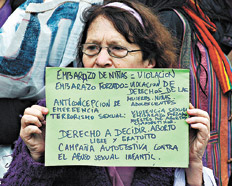 EMBARAZO DE NIÑAS = VIOLACIÓN
EMBARAZO FORZADO = VIOLACIÓN DE
DERECHOS DE LAS
MUJERES, NIÑAS,
ADOLESCENTES
ANTICONCEPCION DE
EMERGENCIA
TERRORISMO SEXUAL:
DERECHO A DECIDIR ABORTO
LIBRE y GRATUITO
CAMPAÑA CONTRA
EL ABUSO SEXUAL INFANTIL.